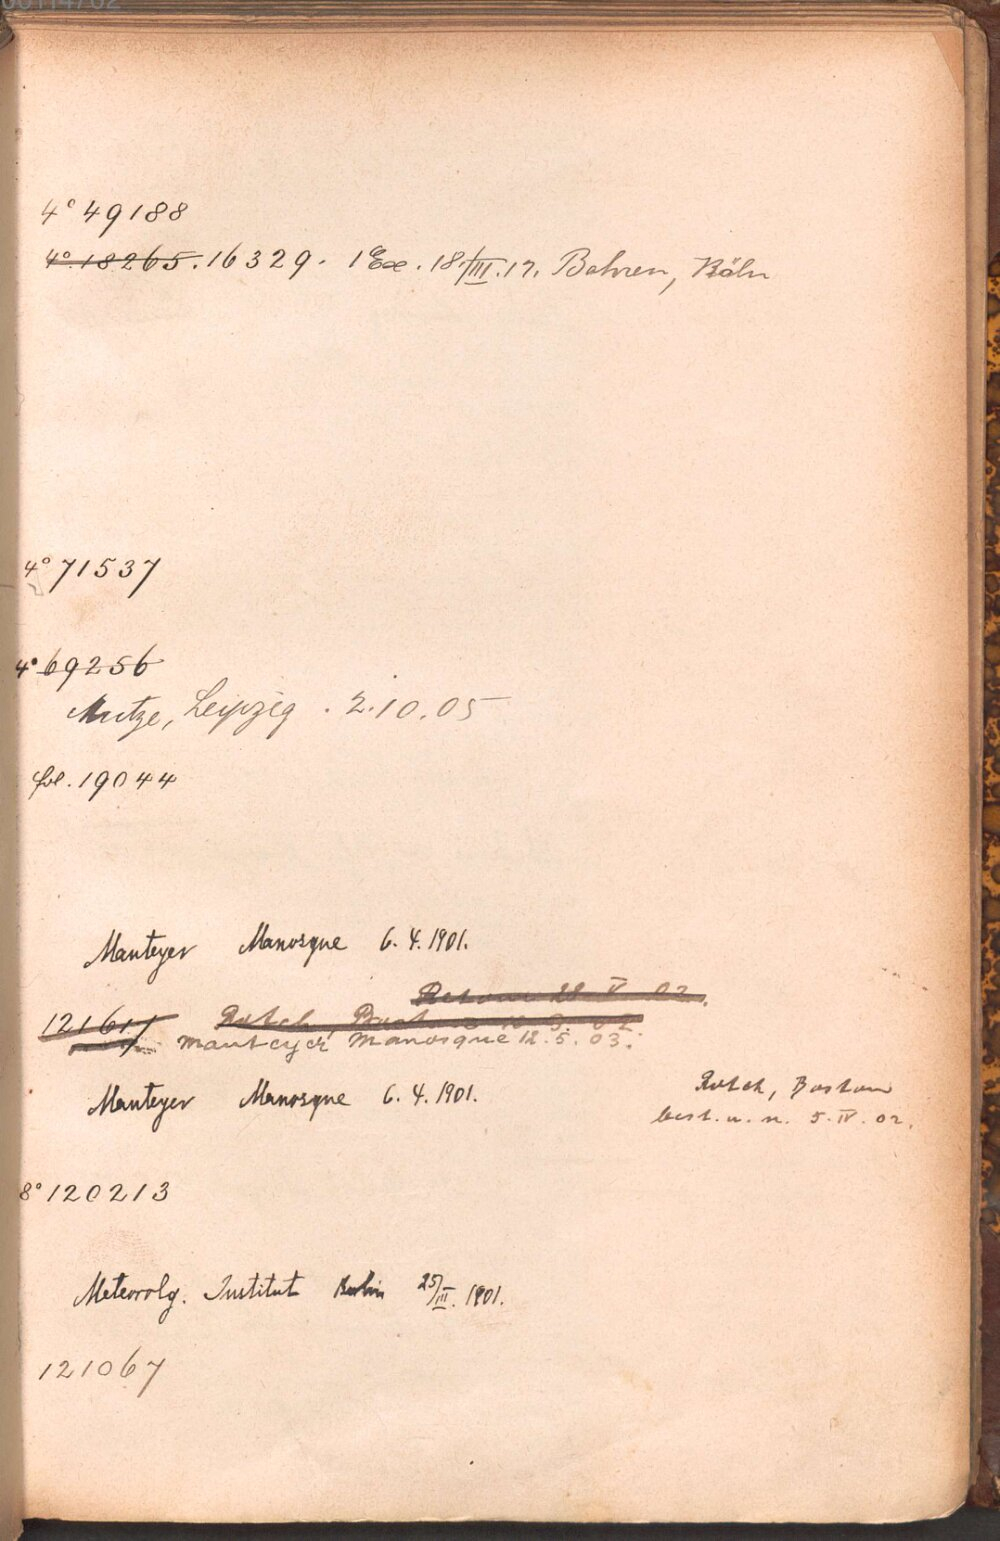 00114702
4° 49188
4° 18265. 16329. 1 Ex. 18/III.17. Bahren, Köln
4° 71537
4° 69256
Mutze, Leipzig . 2.10.05
fol. 19044
Manteyer Manosque 6. 4. 1901.
Retour 28 V 02.
12161 Rotch 10. 3. 02.
Manteyer Manosque 12. 5. 03.
Manteyer Manosque 6. 4. 1901.
Rotch, Boston
best. u. n. 5. IV. 02.
8° 120213
Meteorolg. Institut Berlin 25/III. 1901.
121067